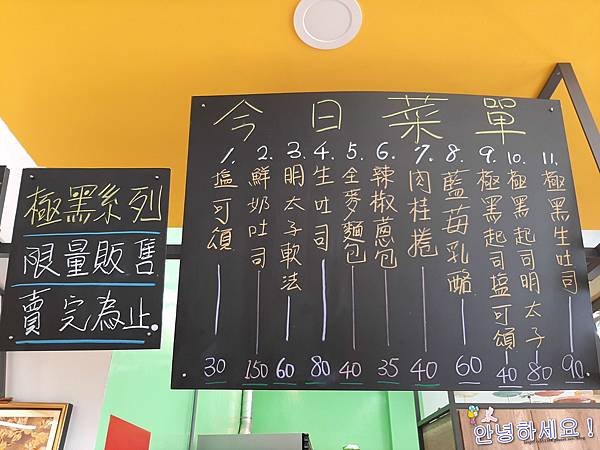 極黑系列
限量販售
賣完為止.
今日菜單
1. 塩可頌 30
2. 鮮奶吐司 150
3. 明太子軟法 60
4. 生吐司 80
5. 全麥麵包 40
6. 辣椒蔥包 35
7. 肉桂捲 40
8. 藍莓乳酪 60
9. 極黑起司塩可頌 40
10. 極黑起司明太子 80
11. 極黑生吐司 90.
안녕하세요!